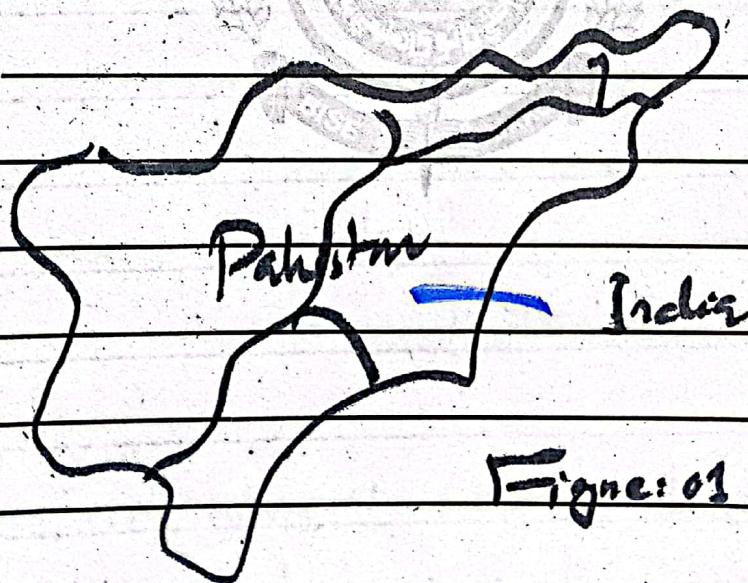 Pakistan
India
Figure: 01